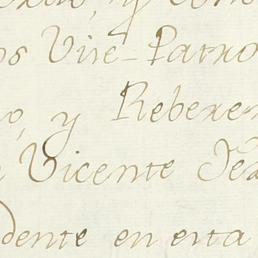 os Vise-Patro
o, y Reberen
Vicente Fe
dente en esta